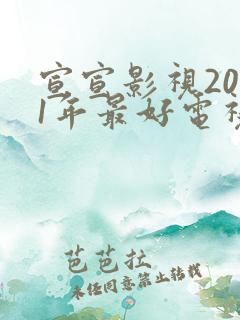 宣宣影視20
1年最好電視
芭芭拉
未经同意禁止转载